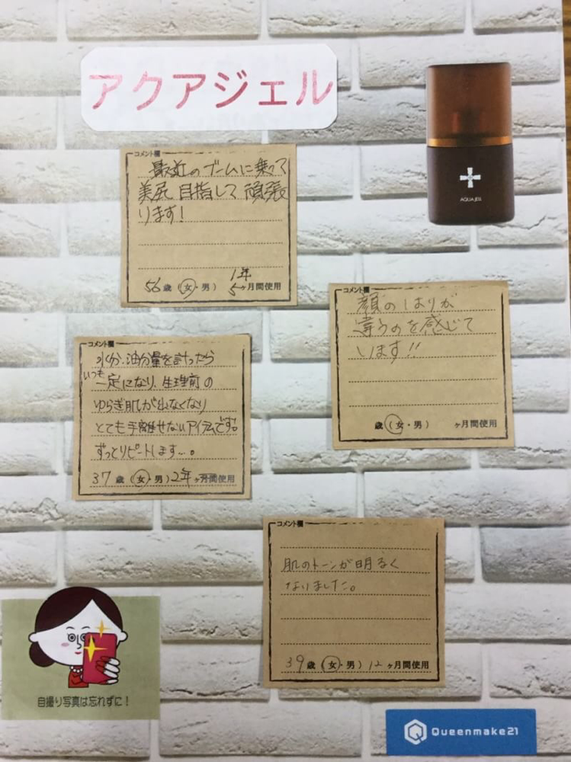 アクアジェル
コメント欄
最近のブームに乗って
美尻目指して頑張
ります!
56歳(女・男) 1年 ヶ月間使用
AQUAJEL
コメント欄
顔のはりが
違うのを感じて
います!!
歳(女・男) ヶ月間使用
コメント欄
水分、油分量を計ったら
いつも一定になり、生理前の
ゆらぎ肌が出なくなり
とても手離せないアイテムです。
ずっとリピートします〜。
37歳(女・男) 2年ヶ月間使用
コメント欄
肌のトーンが明るく
なりました。
39歳(女・男) 12ヶ月間使用
自撮り写真は忘れずに!
Queenmake21